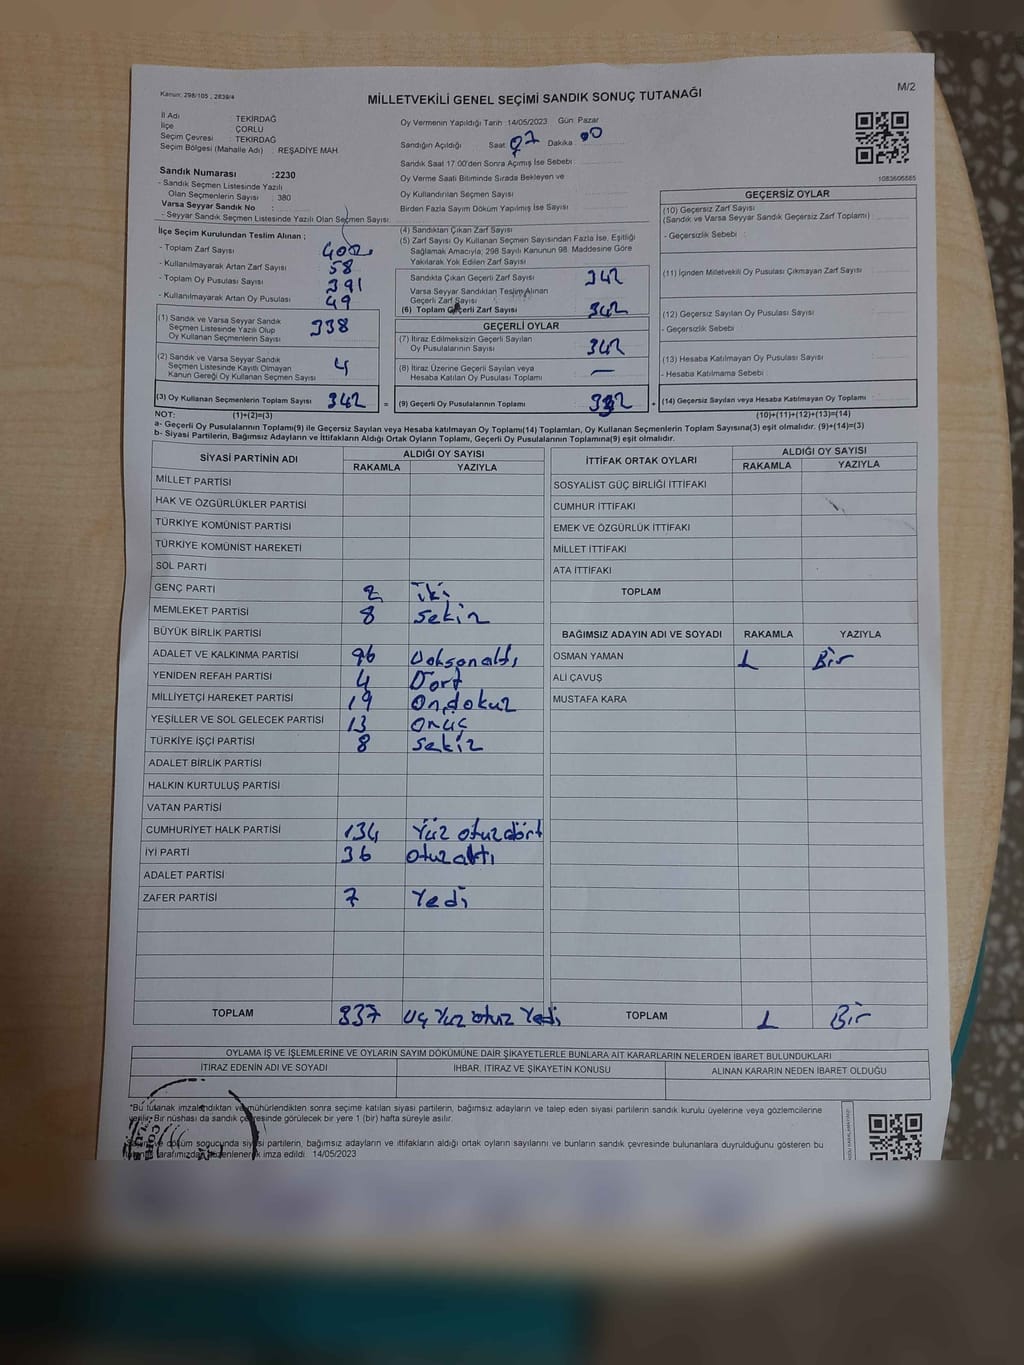 Kanun: 298/105 , 2839/4
M/2
MİLLETVEKİLİ GENEL SEÇİMİ SANDIK SONUÇ TUTANAĞI
İl Adı : TEKİRDAĞ
İlçe : ÇORLU
Seçim Çevresi : TEKİRDAĞ
Seçim Bölgesi (Mahalle Adı) : REŞADİYE MAH
Sandık Numarası :2230
- Sandık Seçmen Listesinde Yazılı
Olan Seçmenlerin Sayısı : 380
Varsa Seyyar Sandık No :
- Seyyar Sandık Seçmen Listesinde Yazılı Olan Seçmen Sayısı:
Oy Vermenin Yapıldığı Tarih :14/05/2023 Gün: Pazar
Sandığın Açıldığı Saat: 07 Dakika: 00
Sandık Saat 17.00'den Sonra Açımış İse Sebebi:
Oy Verme Saati Bitiminde Sırada Bekleyen ve
Oy Kullandırılan Seçmen Sayısı
Birden Fazla Sayım Döküm Yapılmış İse Sayısı
1083606885
İlçe Seçim Kurulundan Teslim Alınan ;
- Toplam Zarf Sayısı 400
- Kullanılmayarak Artan Zarf Sayısı 58
- Toplam Oy Pusulası Sayısı 391
- Kullanılmayarak Artan Oy Pusulası 49
(1) Sandık ve Varsa Seyyar Sandık
Seçmen Listesinde Yazılı Olup
Oy Kullanan Seçmenlerin Sayısı 338
(2) Sandık ve Varsa Seyyar Sandık
Seçmen Listesinde Kayıtlı Olmayan
Kanun Gereği Oy Kullanan Seçmen Sayısı 4
(3) Oy Kullanan Seçmenlerin Toplam Sayısı 342 =
(4) Sandıktan Çıkan Zarf Sayısı
(5) Zarf Sayısı Oy Kullanan Seçmen Sayısından Fazla İse, Eşitliği
Sağlamak Amacıyla, 298 Sayılı Kanunun 98. Maddesine Göre
Yakılarak Yok Edilen Zarf Sayısı
Sandıkta Çıkan Geçerli Zarf Sayısı 342
Varsa Seyyar Sandıktan Teslim Alınan
Geçerli Zarf Sayısı
(6) Toplam Geçerli Zarf Sayısı 342
GEÇERLİ OYLAR
(7) İtiraz Edilmeksizin Geçerli Sayılan
Oy Pusulalarının Sayısı 342
(8) İtiraz Üzerine Geçerli Sayılan veya
Hesaba Katılan Oy Pusulası Toplamı —
(9) Geçerli Oy Pusulalarının Toplamı +
GEÇERSİZ OYLAR
(10) Geçersiz Zarf Sayısı
(Sandık ve Varsa Seyyar Sandık Geçersiz Zarf Toplamı)
- Geçersizlik Sebebi :
(11) İçinden Milletvekili Oy Pusulası Çıkmayan Zarf Sayısı
(12) Geçersiz Sayılan Oy Pusulası Sayısı
- Geçersizlik Sebebi :
(13) Hesaba Katılmayan Oy Pusulası Sayısı
- Hesaba Katılmama Sebebi :
(14) Geçersiz Sayılan veya Hesaba Katılmayan Oy Toplamı
NOT: (1)+(2)=(3) (10)+(11)+(12)+(13)=(14)
a- Geçerli Oy Pusulalarının Toplamı(9) ile Geçersiz Sayılan veya Hesaba katılmayan Oy Toplamı(14) Toplamları, Oy Kullanan Seçmenlerin Toplam Sayısına(3) eşit olmalıdır. (9)+(14)=(3)
b- Siyasi Partilerin, Bağımsız Adayların ve İttifakların Aldığı Ortak Oyların Toplamı, Geçerli Oy Pusulalarının Toplamına(9) eşit olmalıdır.
SİYASİ PARTİNİN ADI ALDIĞI OY SAYISI
RAKAMLA YAZIYLA
MİLLET PARTİSİ
HAK VE ÖZGÜRLÜKLER PARTİSİ
TÜRKİYE KOMÜNİST PARTİSİ
TÜRKİYE KOMÜNİST HAREKETİ
SOL PARTİ
GENÇ PARTİ 2 iki
MEMLEKET PARTİSİ 8 sekiz
BÜYÜK BİRLİK PARTİSİ
ADALET VE KALKINMA PARTİSİ 96 Doksanaltı
YENİDEN REFAH PARTİSİ 4 Dört
MİLLİYETÇİ HAREKET PARTİSİ 19 Ondokuz
YEŞİLLER VE SOL GELECEK PARTİSİ 13 onüç
TÜRKİYE İŞÇİ PARTİSİ 8 sekiz
ADALET BİRLİK PARTİSİ
HALKIN KURTULUŞ PARTİSİ
VATAN PARTİSİ
CUMHURİYET HALK PARTİSİ 134 Yüz otuzdört
İYİ PARTİ 36 otuzaltı
ADALET PARTİSİ
ZAFER PARTİSİ 7 Yedi
TOPLAM 337 üç Yüz otuz Yedi
İTTİFAK ORTAK OYLARI ALDIĞI OY SAYISI
RAKAMLA YAZIYLA
SOSYALİST GÜÇ BİRLİĞİ İTTİFAKI
CUMHUR İTTİFAKI
EMEK VE ÖZGÜRLÜK İTTİFAKI
MİLLET İTTİFAKI
ATA İTTİFAKI
TOPLAM
BAĞIMSIZ ADAYIN ADI VE SOYADI RAKAMLA YAZIYLA
OSMAN YAMAN 1 Bir
ALİ ÇAVUŞ
MUSTAFA KARA
TOPLAM 1 Bir
OYLAMA İŞ VE İŞLEMLERİNE VE OYLARIN SAYIM DÖKÜMÜNE DAİR ŞİKAYETLERLE BUNLARA AİT KARARLARIN NELERDEN İBARET BULUNDUKLARI
İTİRAZ EDENİN ADI VE SOYADI İHBAR, İTİRAZ VE ŞİKAYETİN KONUSU ALINAN KARARIN NEDEN İBARET OLDUĞU
"Bu tutanak imzalandıktan ve mühürlendikten sonra seçime katılan siyasi partilerin, bağımsız adayların ve talep eden siyasi partilerin sandık kurulu üyelerine veya gözlemcilerine
verilir. Bir nüshası da sandık çevresinde görülecek bir yere 1 (bir) hafta süreyle asılır.
döküm sonucunda siyasi partilerin, bağımsız adayların ve ittifakların aldığı ortak oyların sayılarını ve bunların sandık çevresinde bulunanlara duyrulduğunu gösteren bu
tutanak tarafımızdan düzenlenerek imza edildi. 14/05/2023